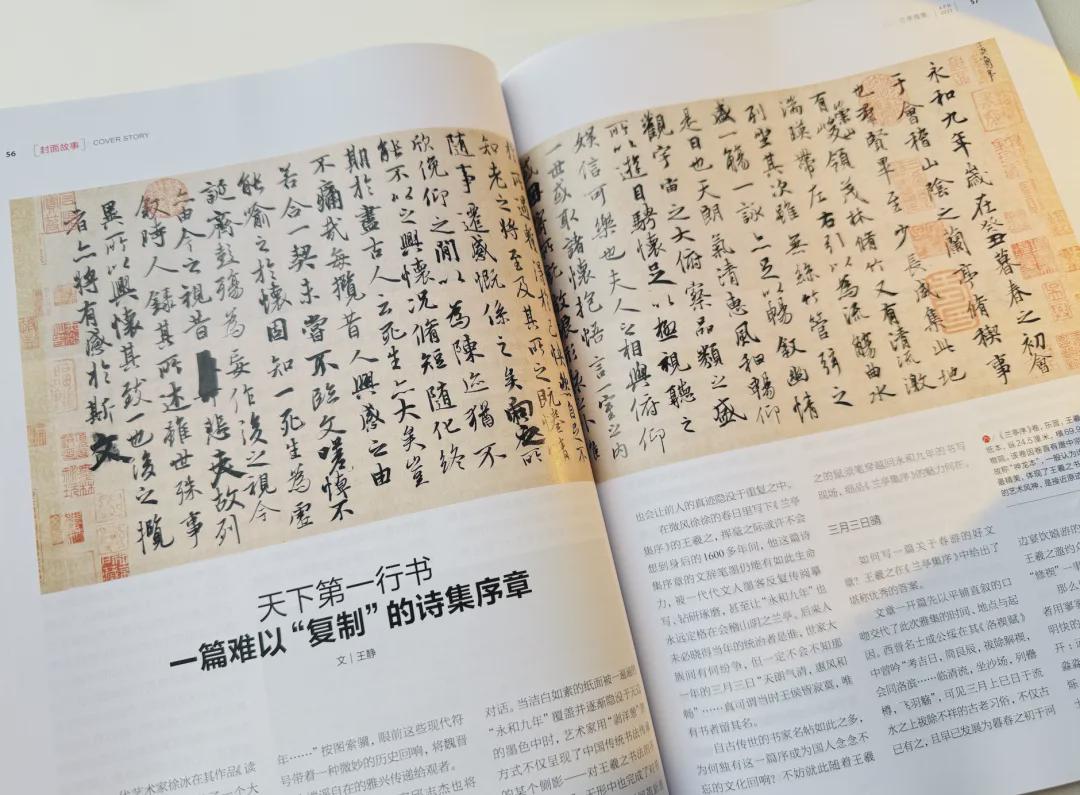 56
[封面故事] COVER STORY
永和九年歲在癸丑暮春之初會
于會稽山陰之蘭亭脩稧事
也群賢畢至少長咸集此地
有崇山峻領茂林脩竹又有清流激
湍暎帶左右引以為流觴曲水
列坐其次雖無絲竹管弦之
盛一觴一詠亦足以暢敘幽情
是日也天朗氣清惠風和暢仰
觀宇宙之大俯察品類之盛
所以遊目騁懷足以極視聽之
娛信可樂也夫人之相與俯仰
一世或取諸懷抱悟言一室之內
知老之將至及其所之既
隨事遷感慨係之矣向之所
欣俛仰之間以為陳迹猶不
能不以之興懷況脩短隨化終
期於盡古人云死生亦大矣豈
不痛哉每攬昔人興感之由
若合一契未嘗不臨文嗟悼不
能喻之於懷固知一死生為虛
誕齊彭殤為妄作後之視今
亦由今之視昔悲夫故列
敘時人錄其所述雖世殊事
異所以興懷其致一也後之攬
者亦將有感於斯文
天下第一行书
一篇难以“复制”的诗集序章
文｜王静
代艺术家徐冰在其作品《读
年……”按图索骥，眼前这些现代符
号带着一种微妙的历史回响，将魏晋
自在的雅兴传递给观者。
对话。当洁白如素的纸面被一遍遍的
“永和九年”覆盖并逐渐隐没于无边
的墨色中时，艺术家用“剥洋葱”的
方式不仅呈现了中国传统书法传承
的某个侧影——对王羲之书法的不
57
也会让前人的真迹隐没于重复之中。
在微风徐徐的春日里写下《兰亭
集序》的王羲之，挥毫之际或许不会
想到身后的1600多年间，他这篇诗
集序章的文辞笔墨仍能有如此生命
力，被一代代文人墨客反复传阅摹
写、钻研琢磨，甚至让“永和九年”也
永远定格在会稽山阴之兰亭。后来人
未必晓得当年的统治者是谁，世家大
族间有何纷争，但一定不会不知那
一年的三月三日“天朗气清，惠风和
畅”……真可谓当时王侯皆寂寞，唯
有书者留其名。
自古传世的书家名帖如此之多，
为何独有这一篇序成为国人念念不
忘的文化回响？不妨就此随着王羲
之的鼠须笔穿越回永和九年的书写
现场，细品《兰亭集序》的魅力何在。
三月三日晴
如何写一篇关于春游的好文
章？王羲之在《兰亭集序》中给出了
堪称优秀的答案。
文章一开篇先以平铺直叙的口
吻交代了此次雅集的时间、地点与起
因。西晋名士成公绥在其《洛禊赋》
中曾吟“考吉日，简良辰，祓除解禊，
会同洛滨……临清流，坐沙场，列罍
樽，飞羽觞”，可见三月上巳日于流
水之上祓除不祥的古老习俗，不仅古
已有之，且早已发展为暮春之初于河
《兰亭序》卷，东晋，王羲
纸本，纵24.5厘米，横69.9
故称“神龙本”，一般认为
的艺术风神，是接近原迹
边宴饮嬉游的
王羲之邀约
“修禊”一事
那么